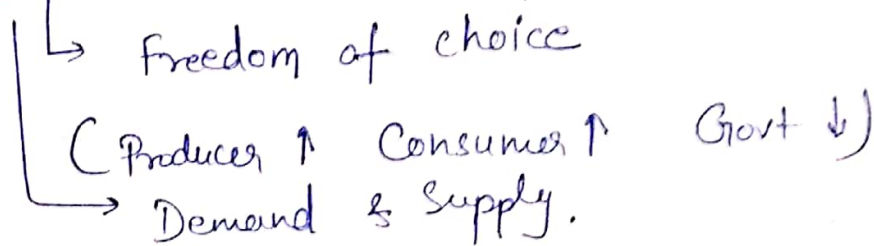 ↳ Freedom of choice
(Producer ↑ Consumer ↑ Govt ↓)
→ Demand & Supply.